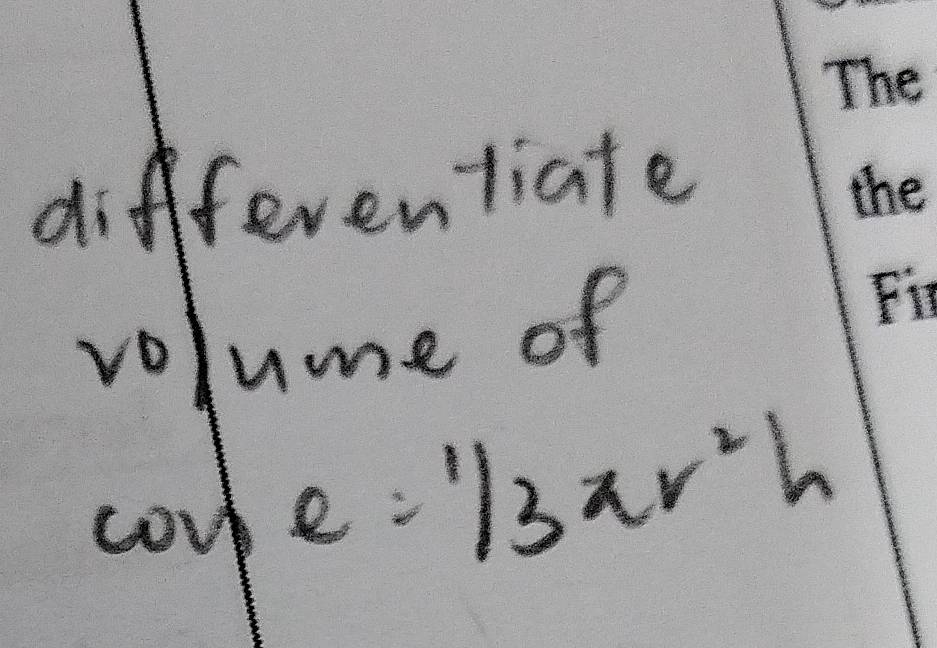 differentiate
volume of
cone = 1/3 πr²h
The
the